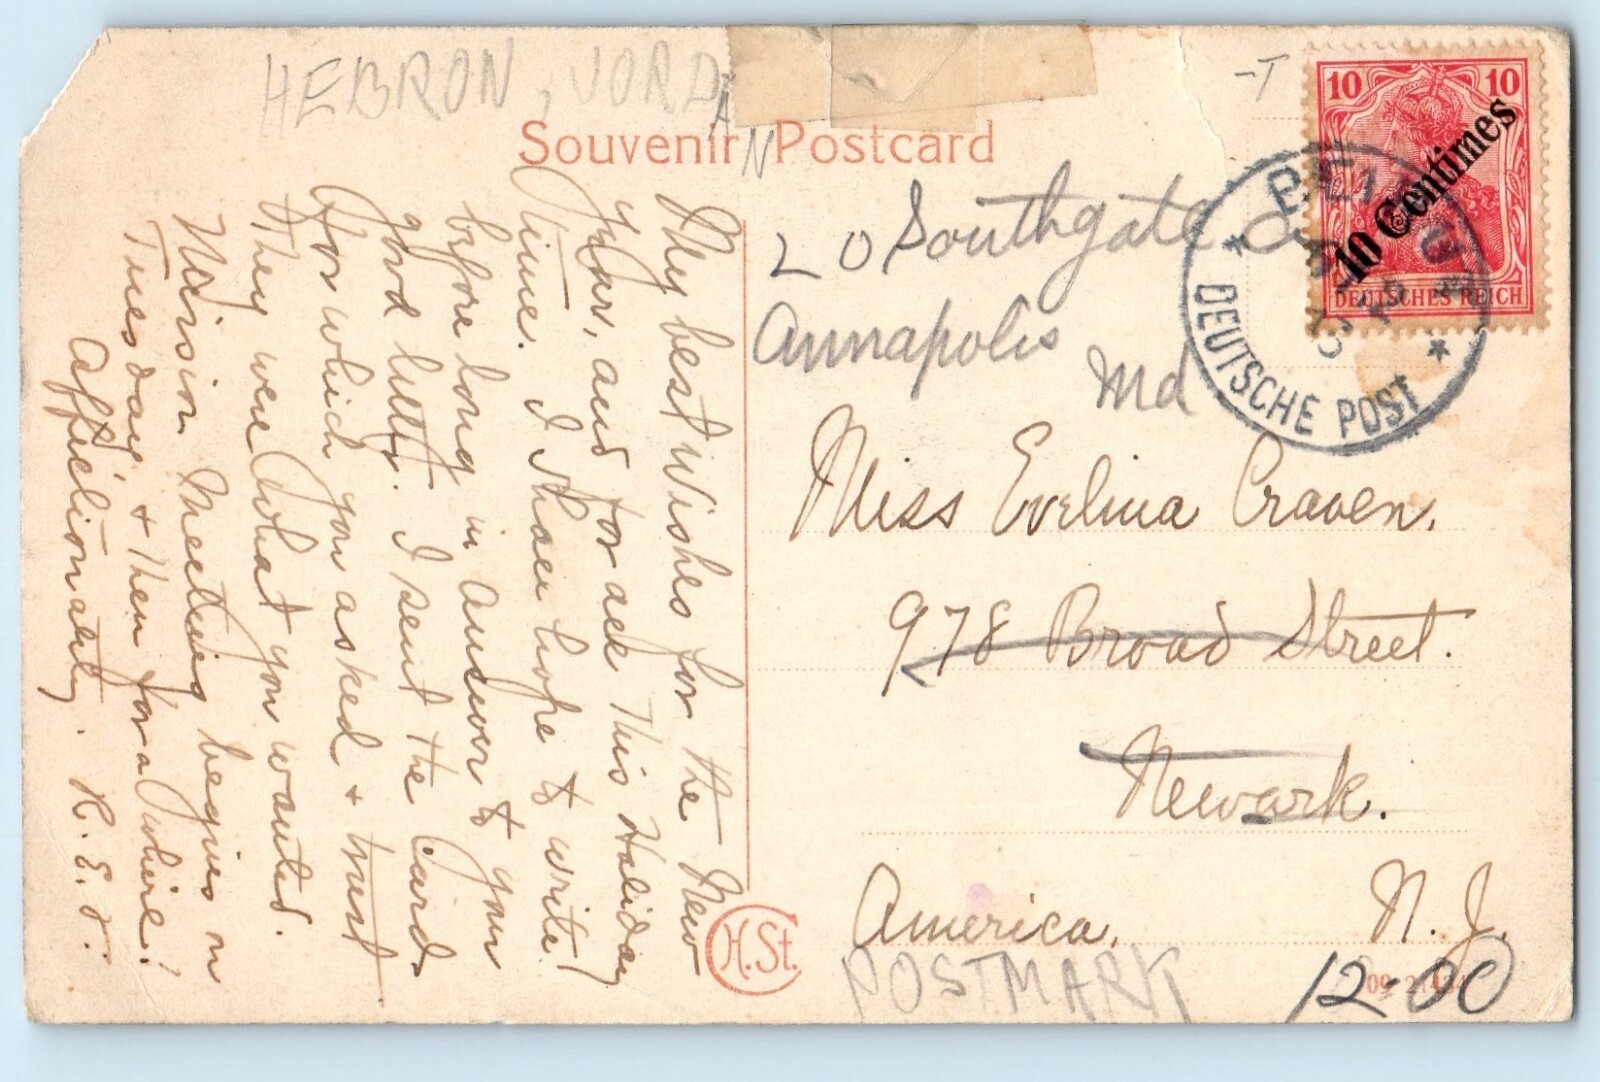 HEBRON, JORDAN
Souvenir Postcard
-T
10 10
10 Centimes
DEUTSCHES REICH
DEUTSCHE POST
My best wishes for the New
Year, and for all This Holiday
Time. I shall hope to write
before long in answer to your
good letter. I sent the Cards
for which you asked & trust
they were what you wanted.
Mission Meeting begins on
Tuesday & then for a while!
Affectionately,
R. E. J.
20 Southgate
Annapolis
Md
Miss Evelina Craven.
978 Broad Street.
Newark.
America. N. J.
H.St.
POSTMARK
12-00